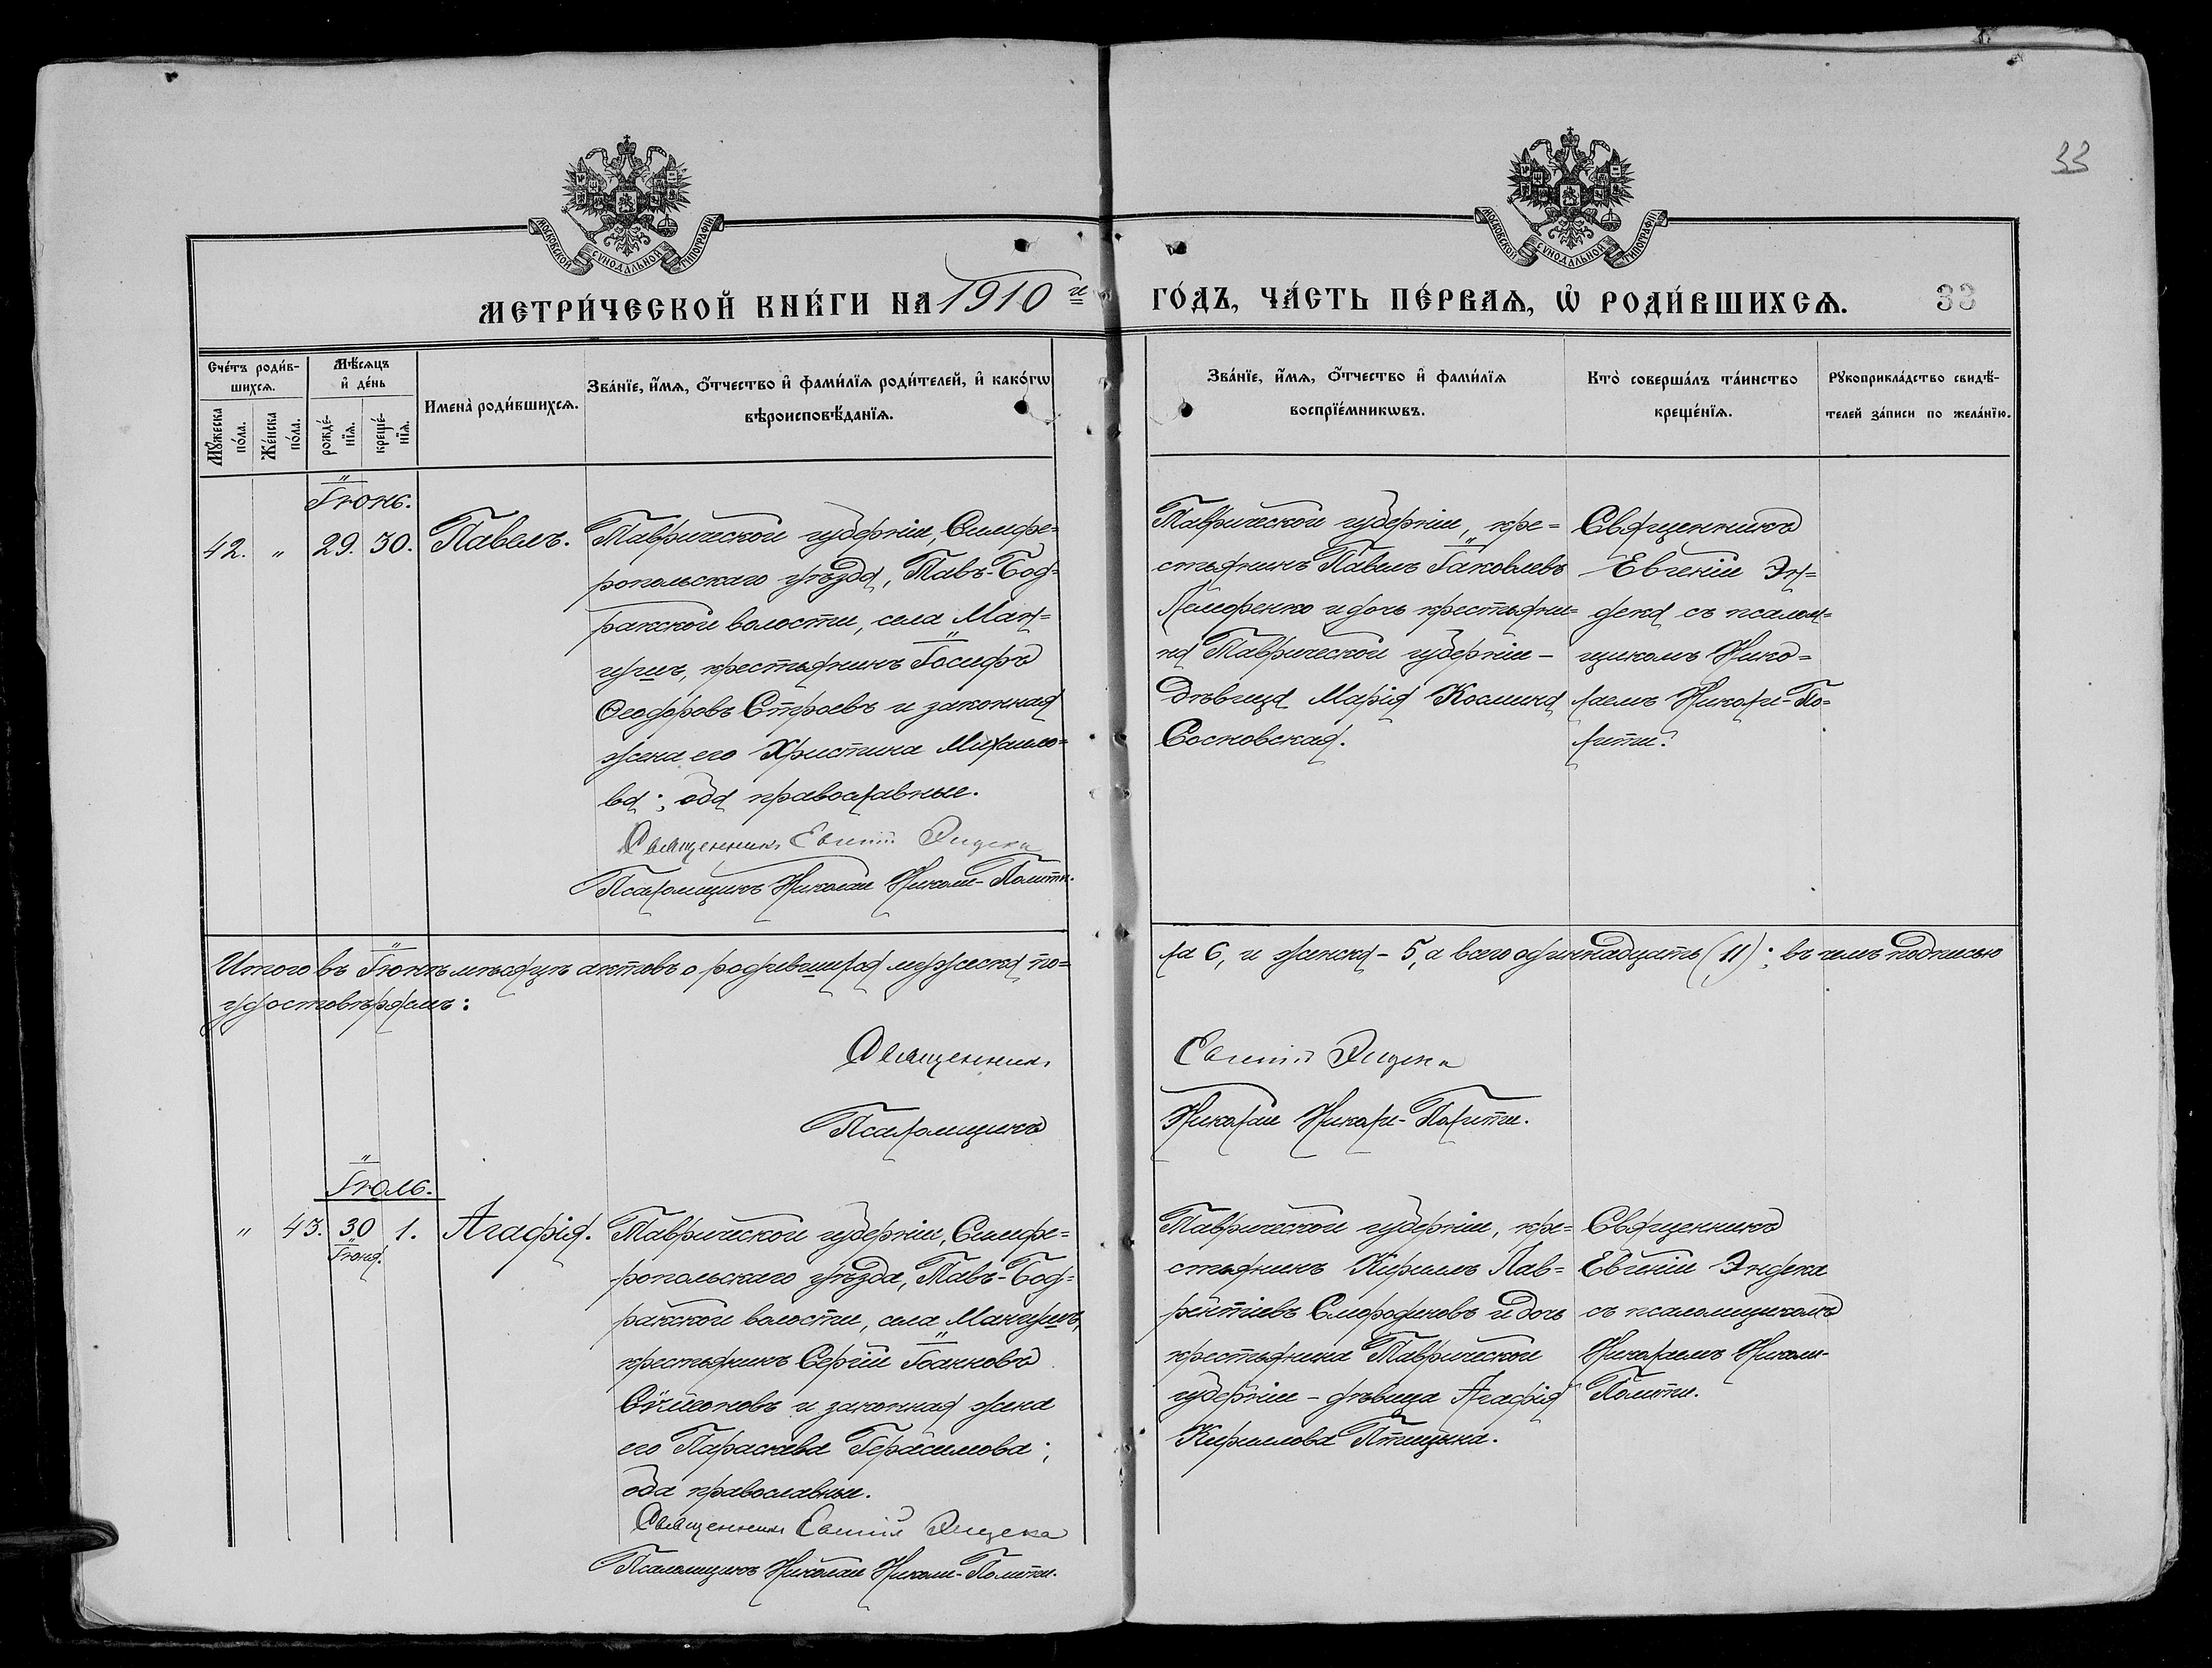 33
МОСКОВСКОЙ СѴНОДАЛЬНОЙ ТИПОГРАФІИ
МОСКОВСКОЙ СѴНОДАЛЬНОЙ ТИПОГРАФІИ
МЕТРИ́ЧЕСКОЙ КНИ́ГИ НА 1910 й
ГО́ДЪ, ЧА́СТЬ ПЕ́РВАѦ, Ѡ҆ РОДИ́ВШИХСѦ. 33
Сче́тъ роди́в-
шихсѧ.
Мꙋ́жеска по́ла.
Же́нска по́ла.
Мѣ́сѧцъ
и҆ де́нь
рожде́-
нїѧ.
креще́-
нїѧ.
Имена̀ роди́вшихсѧ.
Зва́нїе, и҆́мѧ, ѻ҆́тчество и҆ фами́лїѧ роди́телей, и҆ како́гѡ
вѣроисповѣ́данїѧ.
Зва́нїе, и҆́мѧ, ѻ҆́тчество и҆ фами́лїѧ
воспрїе́мникѡвъ.
Кто̀ соверша́лъ та́инство
креще́нїѧ.
Рꙋкоприкла́дство свидѣ́-
телей за́писи по жела́нїю.
Іюнь.
42. " 29. 30. Павелъ.
Таврической губерніи, Симфе=
ропольскаго уѣзда, Тавъ-Бод-
ракской волости, села Ман=
гушъ, крестьянинъ Іосифъ
Ѳеодоровъ Строевъ и законная
жена его Христина Михаило=
ва; оба православные.
Священникъ Евгеній Эндека
Псаломщикъ Николай Николи-Политти.
Таврической губерніи, кре=
стьянинъ Павелъ Іаковлевъ
и дочь крестьяни=
на Таврической губерніи -
дѣвица Марія Космина
Сосновская.
Священникъ
Евгеній Эн=
дека съ псалом=
щикомъ Нико=
лаемъ Николи-По=
литти.
Итого въ Іюнѣ мѣсяцѣ актовъ о родившихся мужеска по=
ла 6, и женска - 5, а всего одиннадцать (11); въ чемъ подписью
удостовѣряемъ:
Священникъ Евгеній Эндека
Псаломщикъ Николай Николи-Политти.
Іюль.
" 43. 30 Іюня. 1. Агафія.
Таврической губерніи, Симфе=
ропольскаго уѣзда, Тавъ-Бод-
ракской волости, села Мангушъ,
крестьянинъ Сергій Іоанновъ
Сѵмеоновъ и законная жена
его Параскева Герасимова;
оба православные.
Священникъ Евгеній Эндека
Псаломщикъ Николай Николи-Политти.
Таврической губерніи, кре=
стьянинъ Кириллъ Лав=
рентіевъ Смородиновъ и дочь
крестьянина Таврической
губерніи - дѣвица Агафія
Кириллова Птицына.
Священникъ
Евгеній Эндека
съ псаломщикомъ
Николаемъ Николи-
Политти.